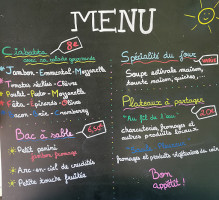 MENU
Ciabatta
8€
avec sa salade gourmande
Jambon - Emmental - Mozzarella
Tomates séchées - Chèvre
Poulet - Pesto - Mozzarella
Féta - Epinards - Olives
Bacon - Brie - Cranberry
Bac à sable
6,50€
Petit panini
jambon fromage
Arc-en-ciel de crudités
Petite touche fruitée
Spécialité du jour
Soupe estivale maison,
tourte maison, quiches...
Plateaux à partager
20€
"Au fil de l'eau"
charcuterie, fromages et
autres produits locaux
fromages et produits végétariens du coin
Bon
appétit!